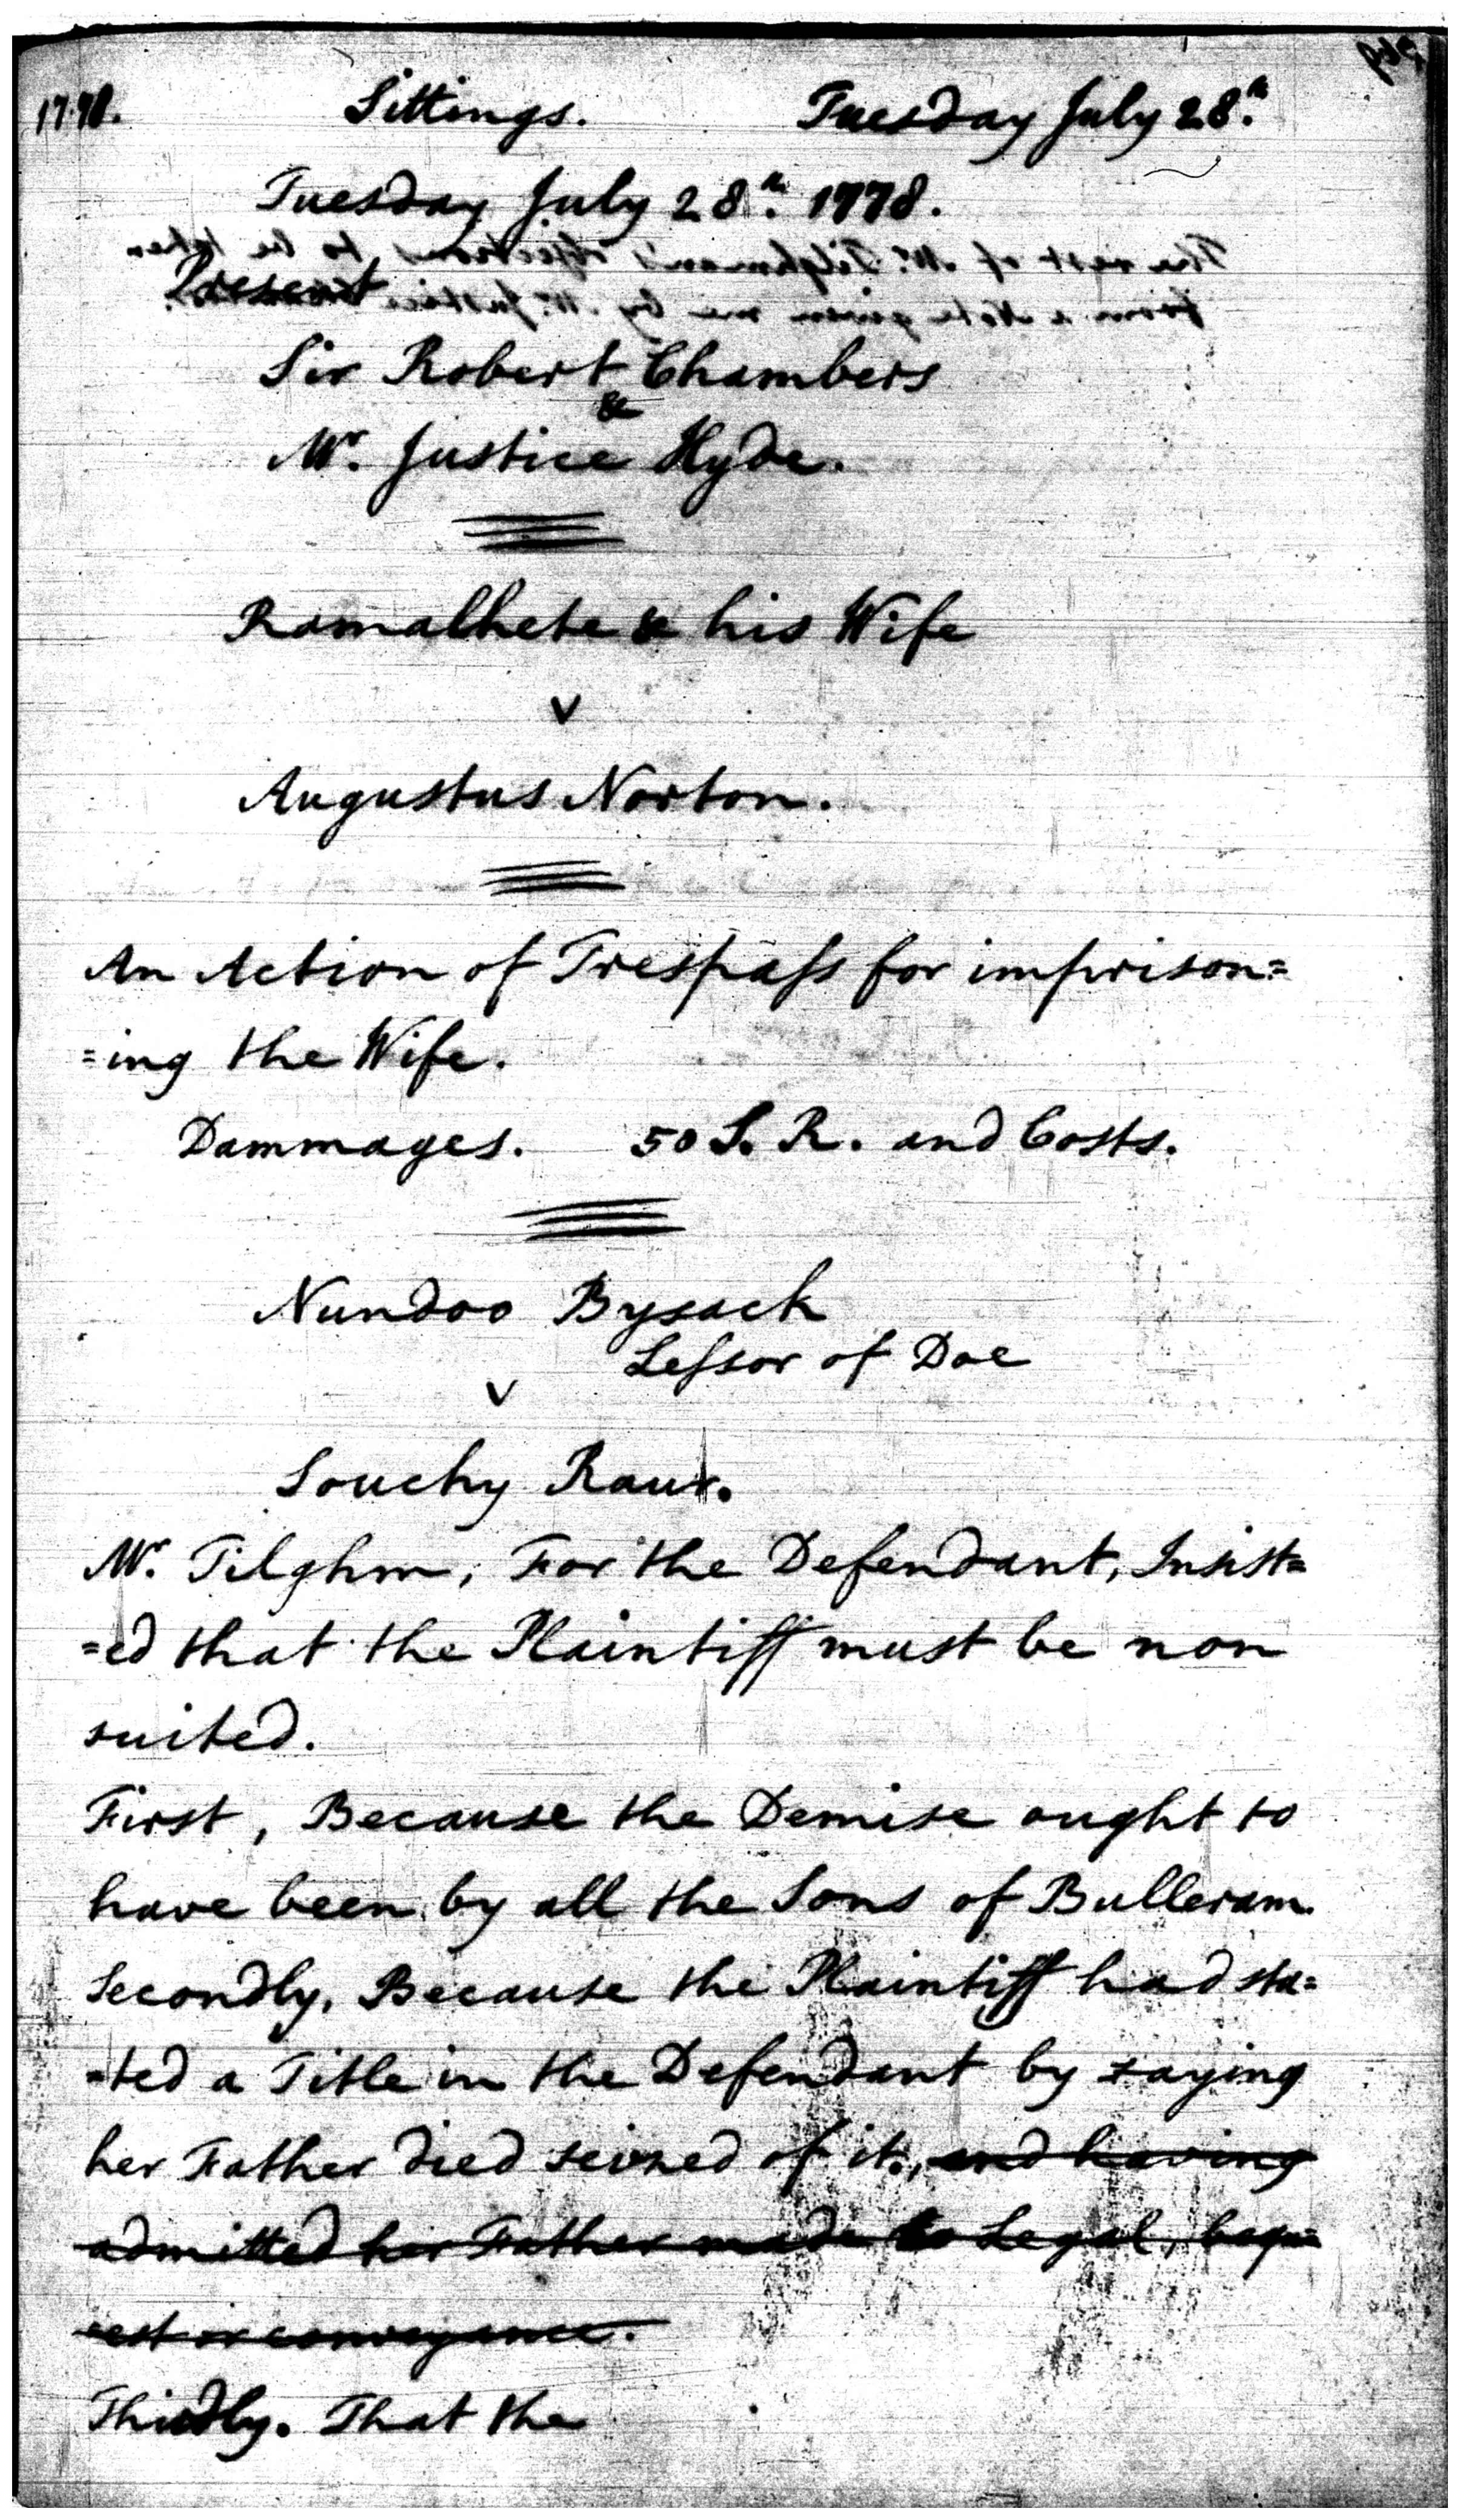 1778. Sittings. Tuesday July 28.th
Tuesday July 28.th 1778.
Present
Sir Robert Chambers
&
Mr. Justice Hyde.
Ramalhete & his Wife
v
Augustus Norton.
An Action of Trespass for imprison=
=ing the Wife.
Dammages. 50 S. R. and Costs.
Nundoo Bysack
Lessor of Doe
v
Souchy Raur.
Mr. Tilghm, For the Defendant, Insist=
=ed that the Plaintiff must be non
suited.
First, Because the Demise ought to
have been by all the Sons of Bulleram.
Secondly, Because the Plaintiff had sta=
=ted a Title in the Defendant by saying
her Father died seized of it., and having
admitted her Father made no Legal, beqe=
=est or conveyance.
Thirdly. That the